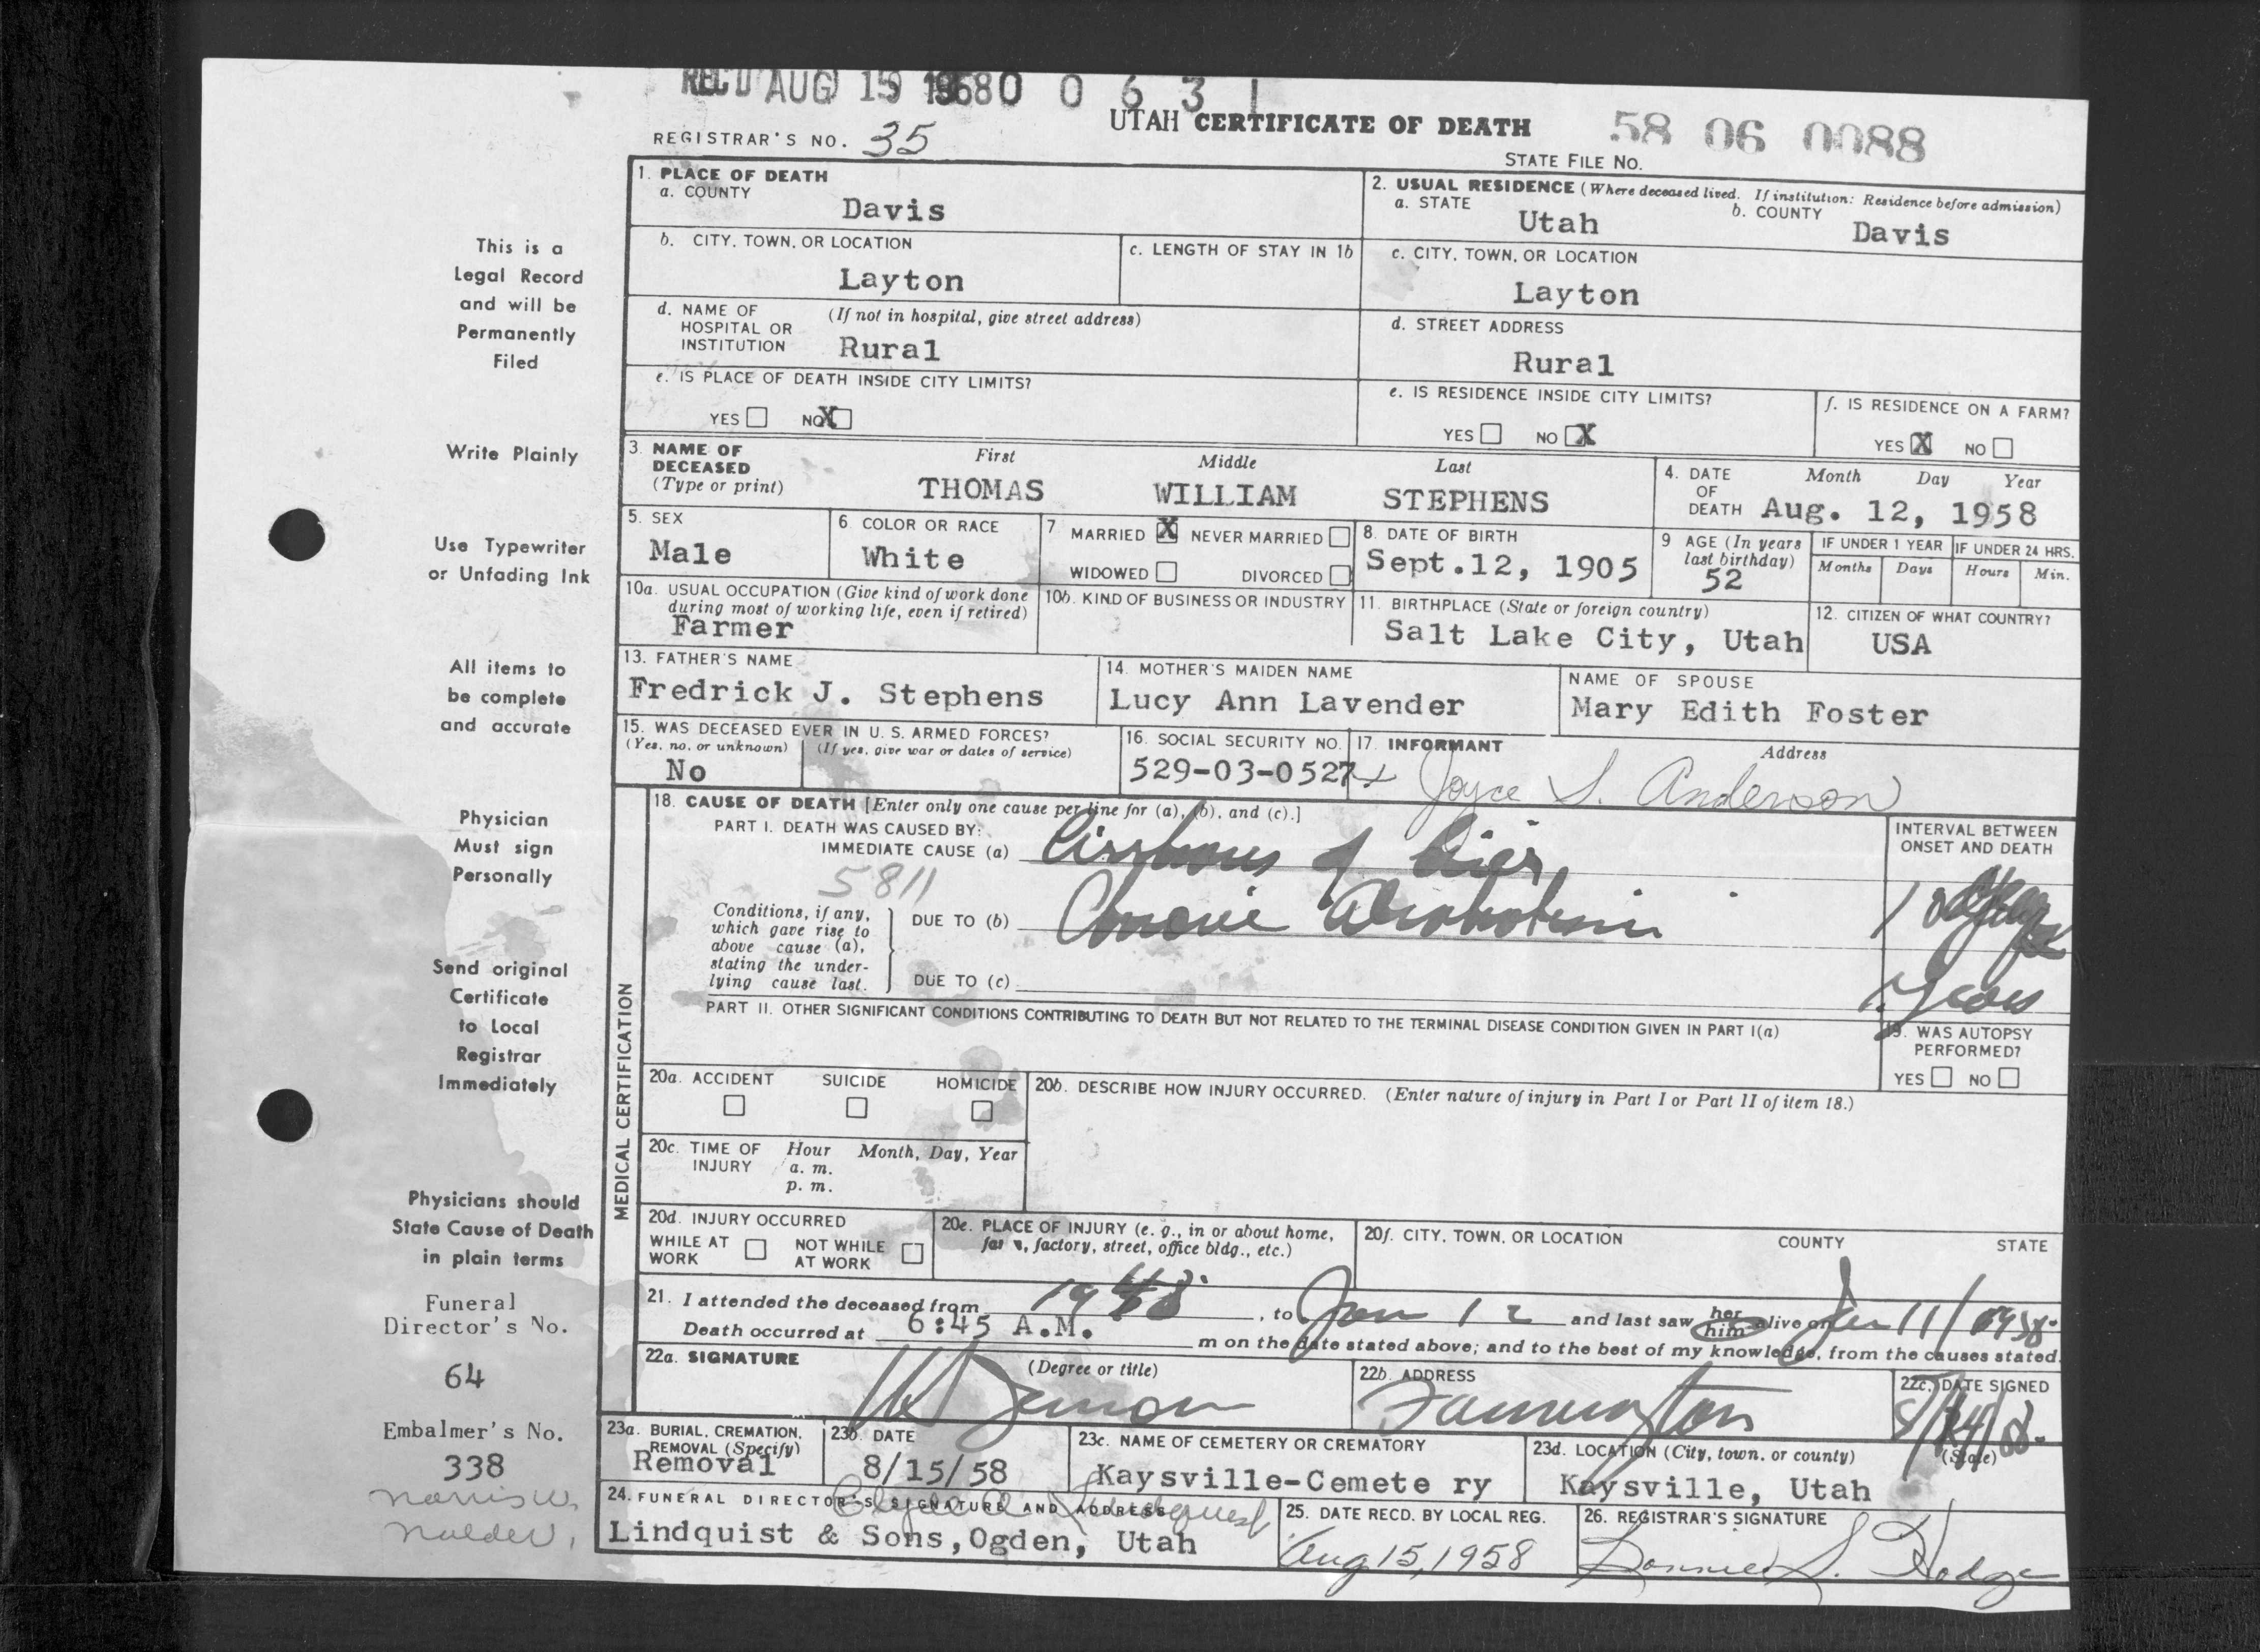 REC'D AUG 15 1958 0 0 6 3 1
UTAH CERTIFICATE OF DEATH
58 06 0088
REGISTRAR'S NO. 35
STATE FILE NO.
1. PLACE OF DEATH
a. COUNTY
Davis
2. USUAL RESIDENCE (Where deceased lived. If institution: Residence before admission)
a. STATE
Utah
b. COUNTY
Davis
b. CITY, TOWN, OR LOCATION
Layton
c. LENGTH OF STAY IN 1b
c. CITY, TOWN, OR LOCATION
Layton
d. NAME OF HOSPITAL OR INSTITUTION
(If not in hospital, give street address)
Rural
d. STREET ADDRESS
Rural
e. IS PLACE OF DEATH INSIDE CITY LIMITS?
YES NO X
e. IS RESIDENCE INSIDE CITY LIMITS?
YES NO X
f. IS RESIDENCE ON A FARM?
YES X NO
3. NAME OF DECEASED (Type or print)
First Middle Last
THOMAS WILLIAM STEPHENS
4. DATE OF DEATH
Month Day Year
Aug. 12, 1958
5. SEX
Male
6. COLOR OR RACE
White
7. MARRIED X NEVER MARRIED
WIDOWED DIVORCED
8. DATE OF BIRTH
Sept.12, 1905
9 AGE (In years last birthday)
52
IF UNDER 1 YEAR
Months Days
IF UNDER 24 HRS.
Hours Min.
10a. USUAL OCCUPATION (Give kind of work done during most of working life, even if retired)
Farmer
10b. KIND OF BUSINESS OR INDUSTRY
11. BIRTHPLACE (State or foreign country)
Salt Lake City, Utah
12. CITIZEN OF WHAT COUNTRY?
USA
13. FATHER'S NAME
Fredrick J. Stephens
14. MOTHER'S MAIDEN NAME
Lucy Ann Lavender
NAME OF SPOUSE
Mary Edith Foster
15. WAS DECEASED EVER IN U. S. ARMED FORCES?
(Yes, no, or unknown) (If yes, give war or dates of service)
No
16. SOCIAL SECURITY NO.
529-03-0527
17. INFORMANT Address
Joyce S. Anderson
MEDICAL CERTIFICATION
18. CAUSE OF DEATH [Enter only one cause per line for (a), (b), and (c).]
PART I. DEATH WAS CAUSED BY:
IMMEDIATE CAUSE (a)
of
5811
INTERVAL BETWEEN ONSET AND DEATH
Conditions, if any, which gave rise to above cause (a), stating the underlying cause last.
DUE TO (b)
DUE TO (c)
years
PART II. OTHER SIGNIFICANT CONDITIONS CONTRIBUTING TO DEATH BUT NOT RELATED TO THE TERMINAL DISEASE CONDITION GIVEN IN PART I(a)
19. WAS AUTOPSY PERFORMED?
YES NO
20a. ACCIDENT SUICIDE HOMICIDE
20b. DESCRIBE HOW INJURY OCCURRED. (Enter nature of injury in Part I or Part II of item 18.)
20c. TIME OF INJURY
Hour Month, Day, Year
a. m.
p. m.
20d. INJURY OCCURRED
WHILE AT WORK NOT WHILE AT WORK
20e. PLACE OF INJURY (e. g., in or about home, farm, factory, street, office bldg., etc.)
20f. CITY, TOWN, OR LOCATION COUNTY STATE
21. I attended the deceased from , to 12 and last saw her him alive on 11/
Death occurred at 6:45 A.M. m on the date stated above; and to the best of my knowledge, from the causes stated.
22a. SIGNATURE (Degree or title)
22b. ADDRESS
Farmington
22c. DATE SIGNED
23a. BURIAL, CREMATION, REMOVAL (Specify)
Removal
23b. DATE
8/15/58
23c. NAME OF CEMETERY OR CREMATORY
Kaysville-Cemete ry
23d. LOCATION (City, town, or county) (State)
Kaysville, Utah
24. FUNERAL DIRECTOR'S SIGNATURE AND ADDRESS
Lindquist & Sons,Ogden, Utah
25. DATE RECD. BY LOCAL REG.
Aug 15, 1958
26. REGISTRAR'S SIGNATURE
S. Hodge
This is a
Legal Record
and will be
Permanently
Filed
Write Plainly
Use Typewriter
or Unfading Ink
All items to
be complete
and accurate
Physician
Must sign
Personally
Send original
Certificate
to Local
Registrar
Immediately
Physicians should
State Cause of Death
in plain terms
Funeral
Director's No.
64
Embalmer's No.
338
Norris W.
Nalder,